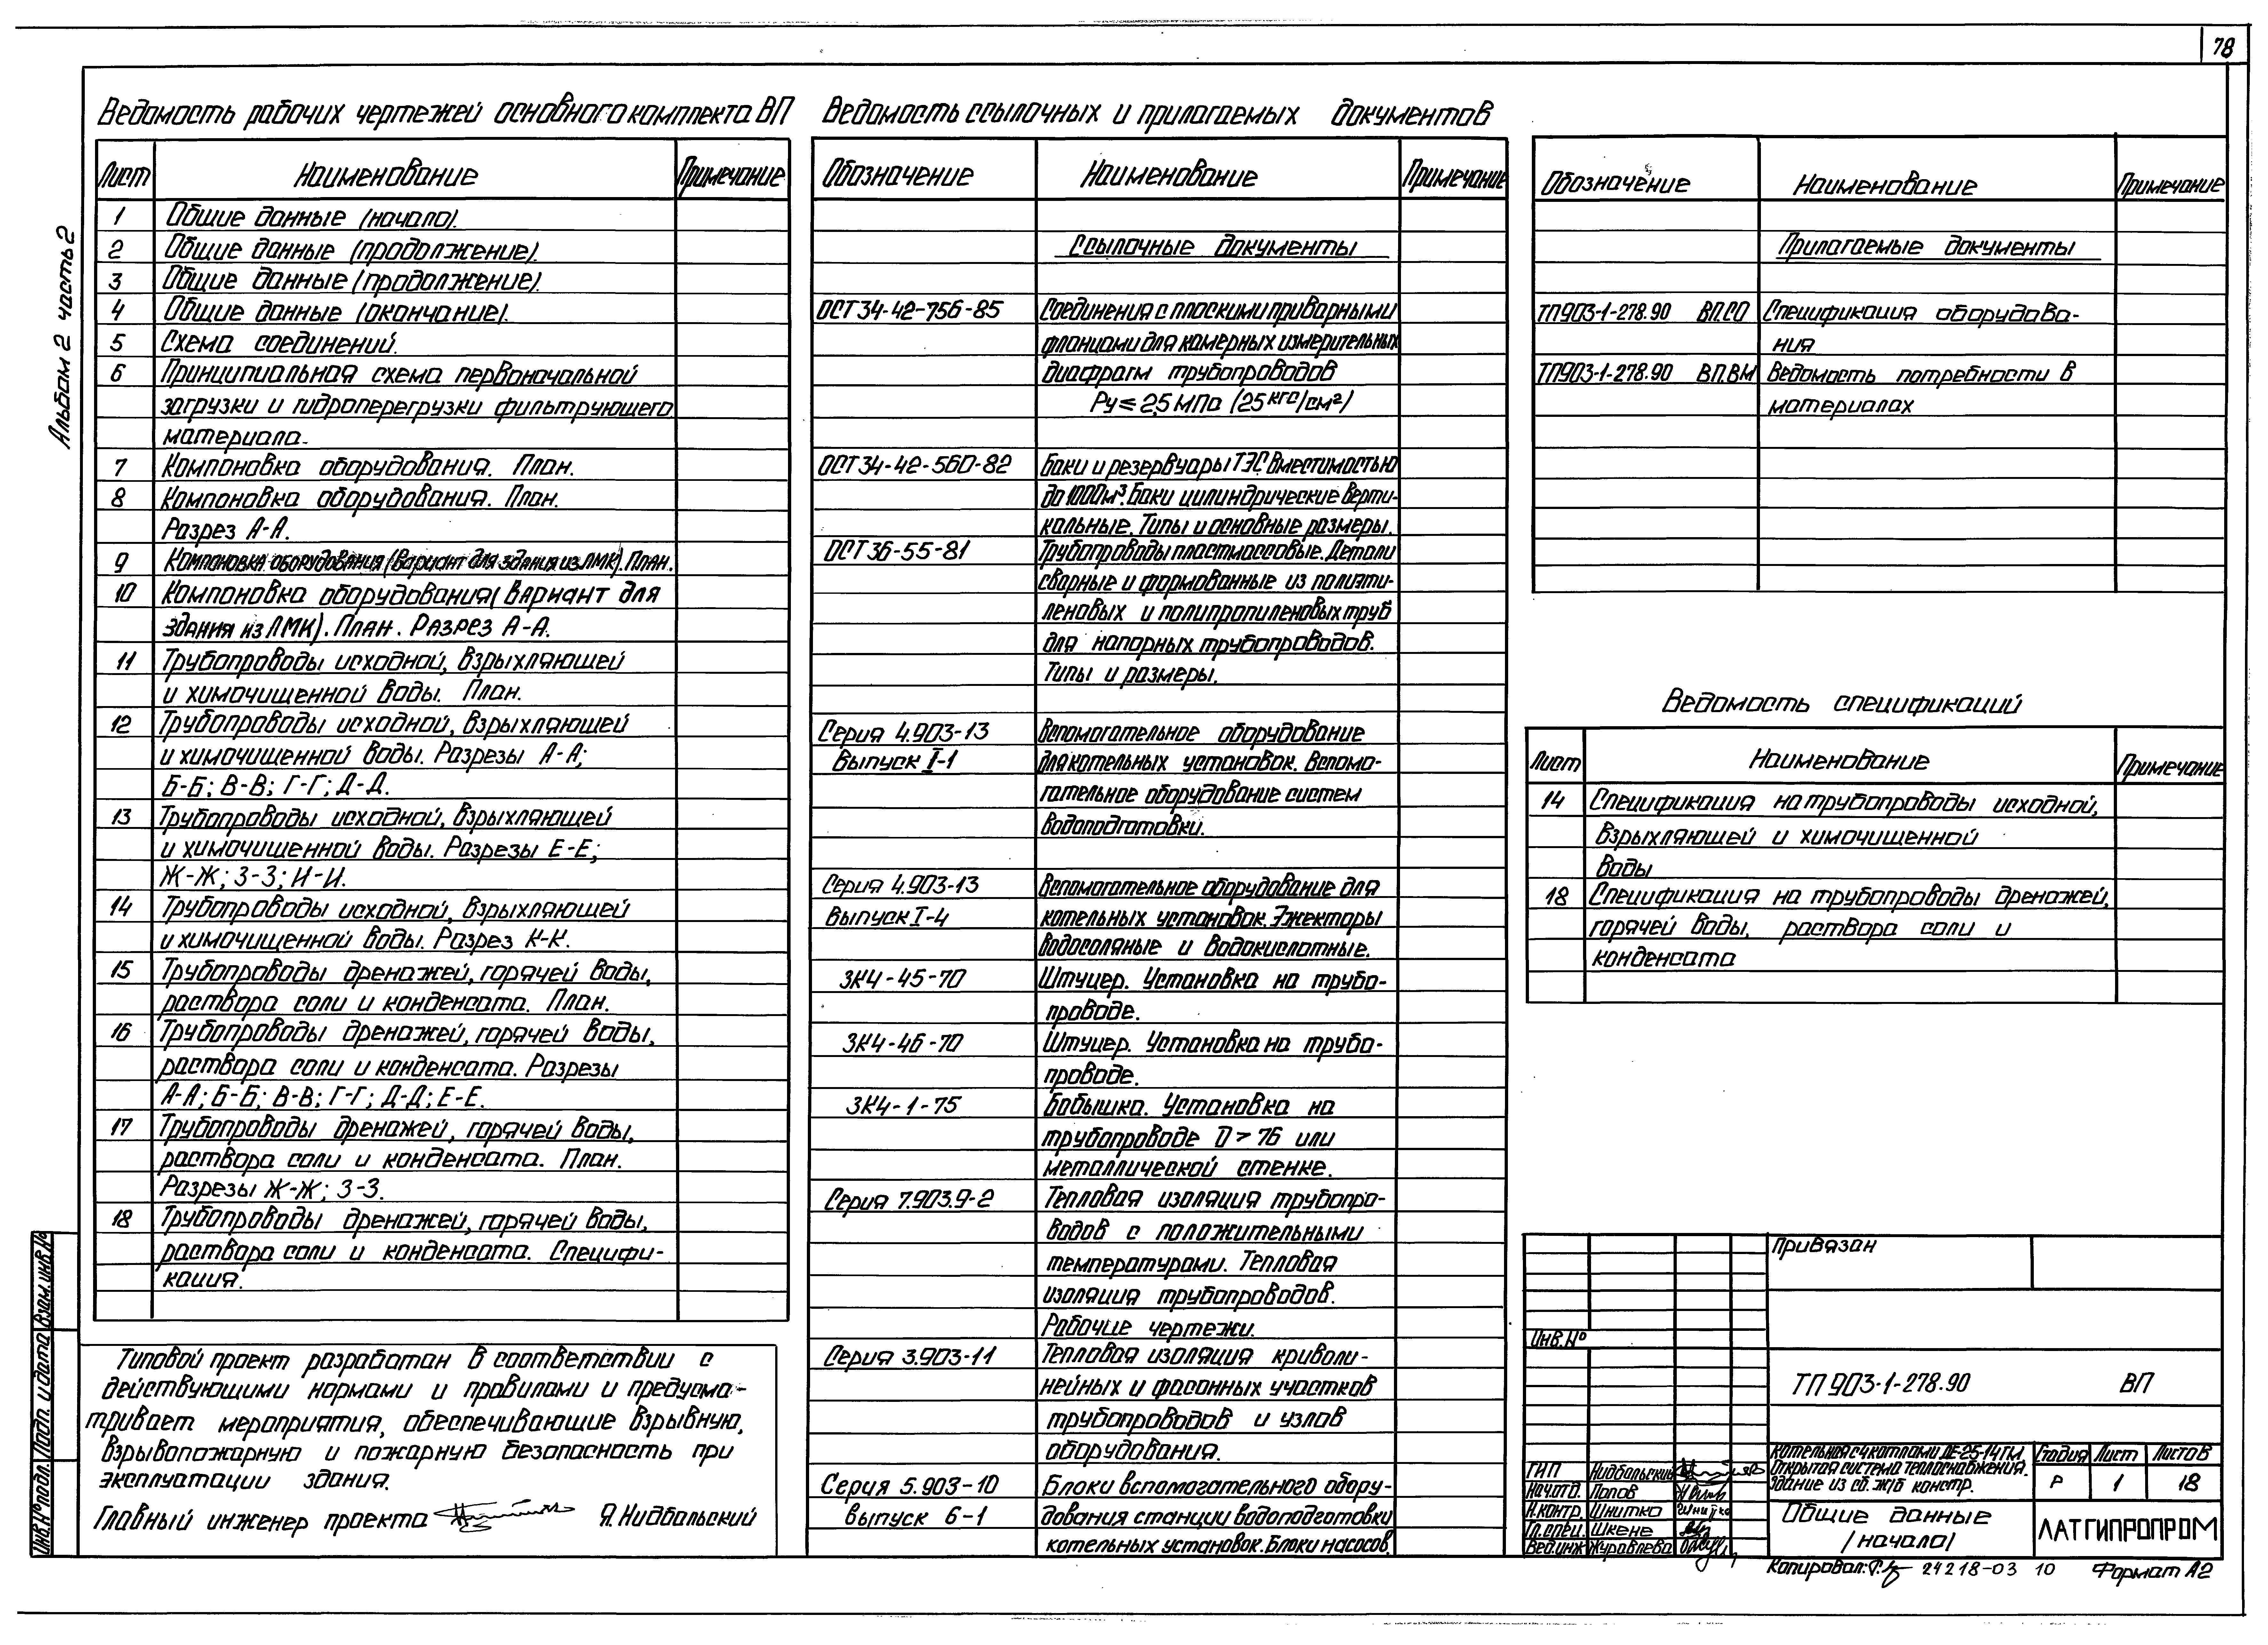 78
Альбом 2 часть 2
Ведомость рабочих чертежей основного комплекта ВП
Лист Наименование Примечание
1 Общие данные (начало).
2 Общие данные (продолжение).
3 Общие данные (продолжение).
4 Общие данные (окончание).
5 Схема соединений.
6 Принципиальная схема первоначальной
загрузки и гидроперегрузки фильтрующего
материала.
7 Компоновка оборудования. План.
8 Компоновка оборудования. План.
Разрез А-А.
9 Компоновка оборудования (вариант для здания из ЛМК). План.
10 Компоновка оборудования (вариант для
здания из ЛМК). План. Разрез А-А.
11 Трубопроводы исходной, взрыхляющей
и химочищенной воды. План.
12 Трубопроводы исходной, взрыхляющей
и химочищенной воды. Разрезы А-А;
Б-Б; В-В; Г-Г; Д-Д.
13 Трубопроводы исходной, взрыхляющей
и химочищенной воды. Разрезы Е-Е;
Ж-Ж; З-З; И-И.
14 Трубопроводы исходной, взрыхляющей
и химочищенной воды. Разрез К-К.
15 Трубопроводы дренажей, горячей воды,
раствора соли и конденсата. План.
16 Трубопроводы дренажей, горячей воды,
раствора соли и конденсата. Разрезы
А-А; Б-Б; В-В; Г-Г; Д-Д; Е-Е.
17 Трубопроводы дренажей, горячей воды,
раствора соли и конденсата. План.
Разрезы Ж-Ж; З-З.
18 Трубопроводы дренажей, горячей воды,
раствора соли и конденсата. Специфи-
кация.
Типовой проект разработан в соответствии с
действующими нормами и правилами и предусма-
тривает мероприятия, обеспечивающие взрывную,
взрывопожарную и пожарную безопасность при
эксплуатации здания.
Главный инженер проекта Я.Нидбальский
Инв.№ подл. Подп. и дата Взам.инв.№
Ведомость ссылочных и прилагаемых документов
Обозначение Наименование Примечание
Ссылочные документы
ОСТ 34-42-756-85 Соединения с плоскими приварными
фланцами для камерных измерительных
диафрагм трубопроводов
Ру ≤ 2,5 МПа (25 кгс/см²)
ОСТ 34-42-560-82 Баки и резервуары ТЭС вместимостью
до 1000м³. Баки цилиндрические верти-
кальные. Типы и основные размеры.
ОСТ 36-55-81 Трубопроводы пластмассовые. Детали
сварные и формованные из полиэти-
леновых и полипропиленовых труб
для напорных трубопроводов.
Типы и размеры.
Серия 4.903-13 Вспомогательное оборудование
Выпуск I-1 для котельных установок. Вспомо-
гательное оборудование систем
водоподготовки.
Серия 4.903-13 Вспомогательное оборудование для
Выпуск I-4 котельных установок. Эжекторы
водосоляные и водокислотные.
ЗК4-45-70 Штуцер. Установка на трубо-
проводе.
ЗК4-46-70 Штуцер. Установка на трубо-
проводе.
ЗК4-1-75 Бобышка. Установка на
трубопроводе D > 76 или
металлической стенке.
Серия 7.903.9-2 Тепловая изоляция трубопро-
водов с положительными
температурами. Тепловая
изоляция трубопроводов.
Рабочие чертежи.
Серия 3.903-11 Тепловая изоляция криволи-
нейных и фасонных участков
трубопроводов и узлов
оборудования.
Серия 5.903-10 Блоки вспомогательного обору-
выпуск 6-1 дования станции водоподготовки
котельных установок. Блоки насосов.
Обозначение Наименование Примечание
Прилагаемые документы
ТП903-1-278.90 ВП.СО Спецификация оборудова-
ния
ТП903-1-278.90 ВП.ВМ Ведомость потребности в
материалах
Ведомость спецификаций
Лист Наименование Примечание
14 Спецификация на трубопроводы исходной,
взрыхляющей и химочищенной
воды
18 Спецификация на трубопроводы дренажей,
горячей воды, раствора соли и
конденсата
Привязан
Инв.№
ТП 903-1-278.90 ВП
Котельная с 4 котлами ДЕ-25-14ГМ.
Открытая система теплоснабжения.
Здание из сб. ж/б констр.
Стадия Лист Листов
Р 1 18
ГИП Нидбальский
Нач.отд. Попов
Н.контр. Шнитко
Гл.спец. Шкене
Вед.инж. Журавлева
Общие данные
(начало)
ЛАТГИПРОПРОМ
Копировал: 24218-03 10 Формат А2